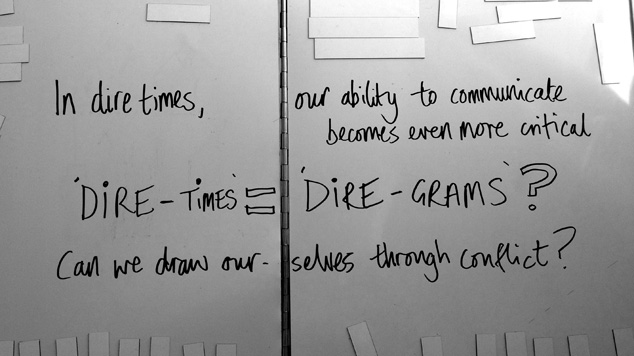 In dire times, our ability to communicate
becomes even more critical
'DIRE-TIMES' = 'DIRE-GRAMS'?
Can we draw our-selves through conflict?